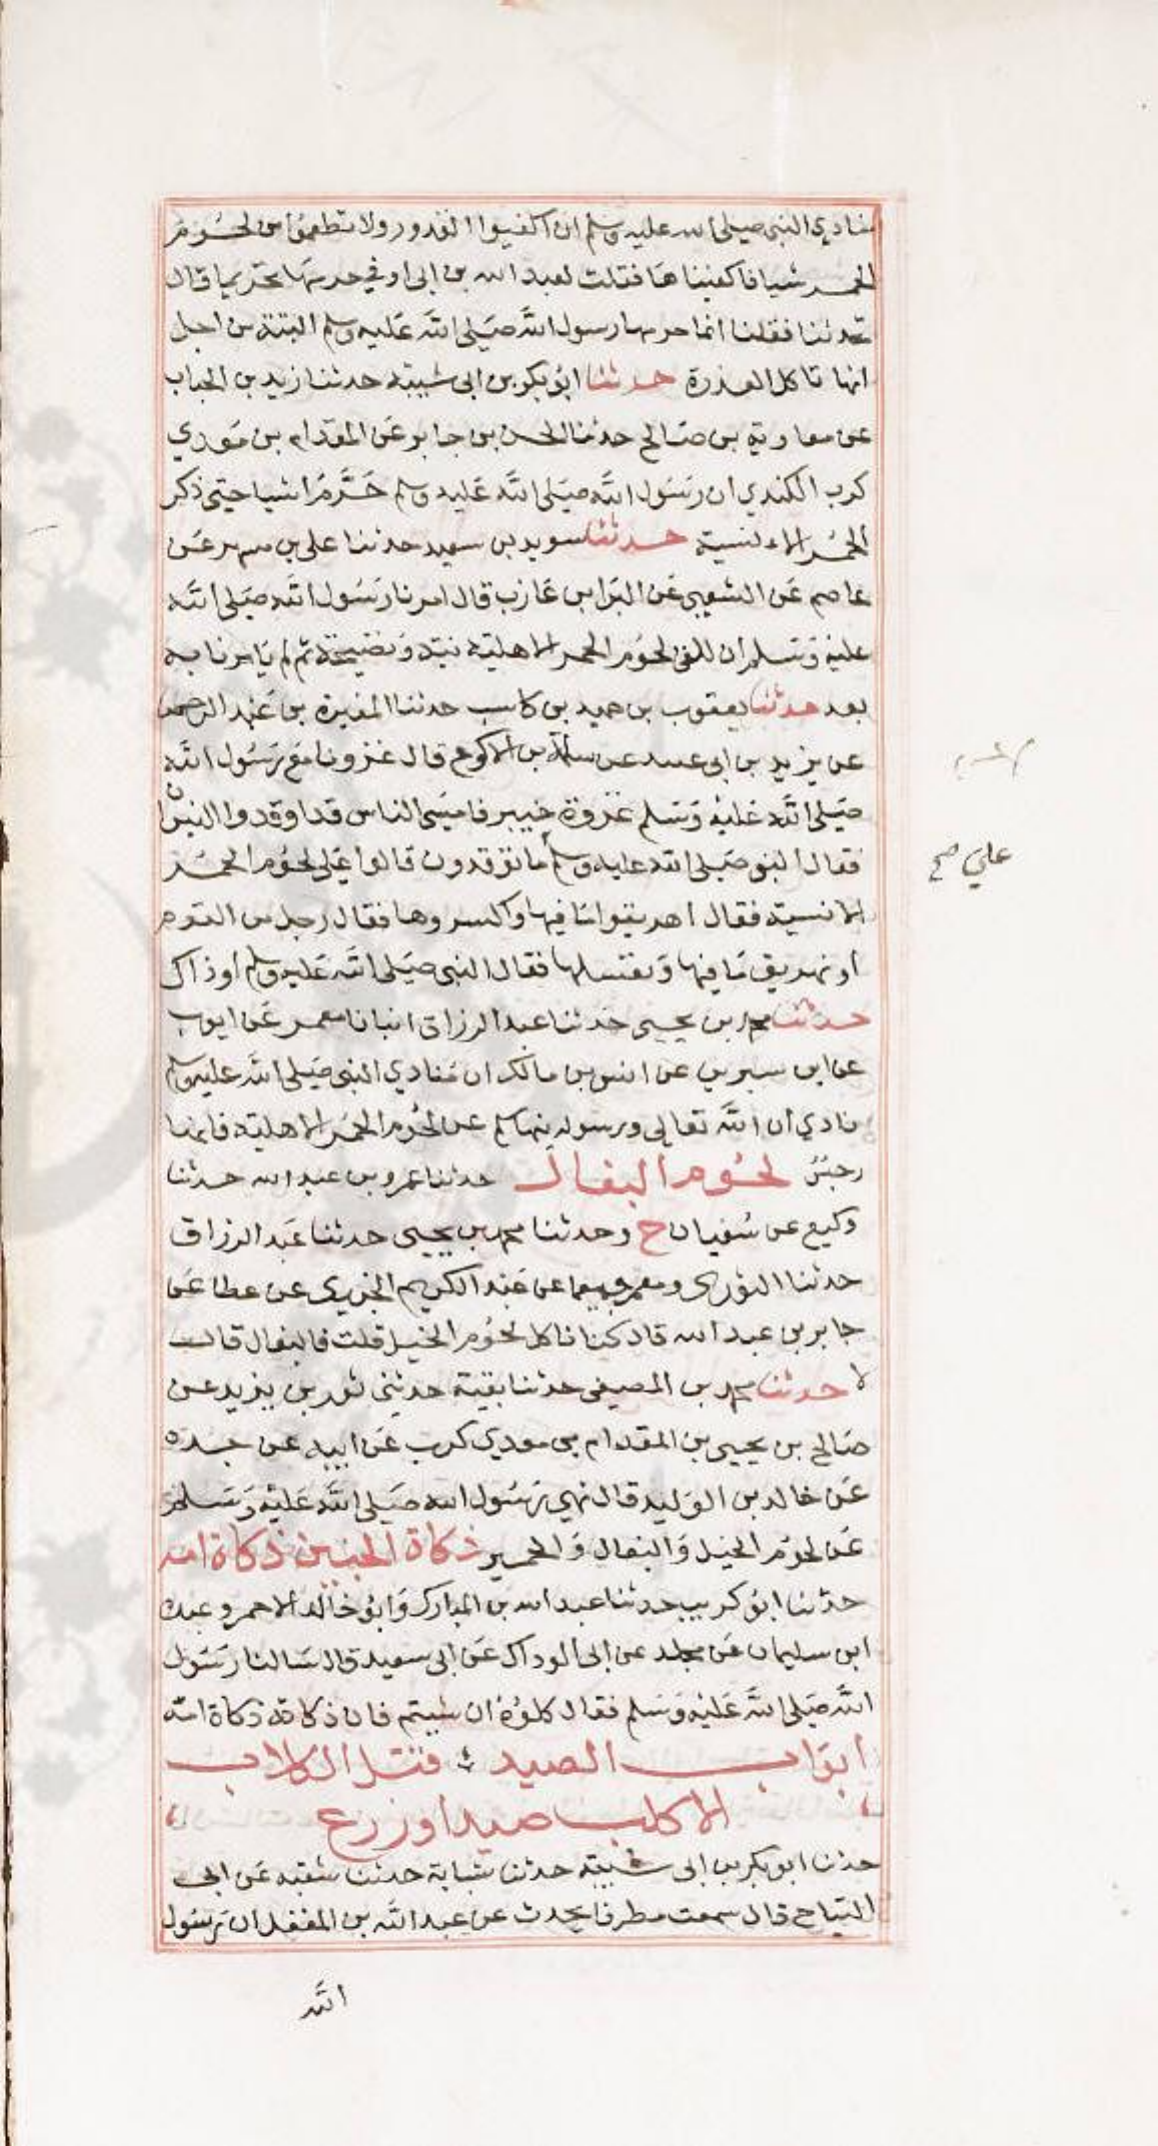 منادي النبي صلى الله عليه وسلم ان اكفيوا القدور ولا تطعموا من لحوم
الحمر شيا فاكفيناها فقلت لعبد الله بن ابي اوفى حرمها تحريما قال
تحدثنا فقلنا انما حرمها رسول الله صلى الله عليه وسلم البتة من اجل
انها تاكل العذرة حدثنا ابو بكر بن ابي شيبة حدثنا زيد بن الحباب
عن معاوية بن صالح حدثنا الحسن بن جابر عن المقدام بن معدي
كرب الكندي ان رسول الله صلى الله عليه وسلم حَرَّم اشيا حتى ذكر
الحمر الانسية حدثنا سويد بن سعيد حدثنا علي بن مسهر عن
عاصم عن الشعبي عن البرا بن عازب قال امرنا رسول الله صلى الله
عليه وسلم ان نلقي لحوم الحمر الاهلية نية ونضيجة ثم لم يامرنا به
بعد حدثنا يعقوب بن حميد بن كاسب حدثنا المغيرة بن عبد الرحمن
عن يزيد بن ابي عبيد عن سلمة بن الاكوع قال غزونا مع رسول الله
صلى الله عليه وسلم غزوة خيبر فامسى الناس قد اوقدوا النيران
فقال النبي صلى الله عليه وسلم ما توقدون قالوا على لحوم الحمر
علي صح
الانسية فقال اهريقوا ما فيها واكسروها فقال رجل من القوم
او نهريق ما فيها ونغسلها فقال النبي صلى الله عليه وسلم او ذاك
حدثنا محمد بن يحيى حدثنا عبد الرزاق انبانا معمر عن ايوب
عن ابن سيرين عن انس بن مالك ان منادي النبي صلى الله عليه وسلم
نادي ان الله تعالى ورسوله ينهاكم عن لحوم الحمر الاهلية فانها
رجس لحوم البغال حدثنا عمرو بن عبد الله حدثنا
وكيع عن سفيان ح وحدثنا محمد بن يحيى حدثنا عبد الرزاق
حدثنا الثوري ومعمر جميعا عن عبد الكريم الجزري عن عطا عن
جابر بن عبد الله قال كنا ناكل لحوم الخيل قلت فالبغال قال
لا حدثنا محمد بن المصفى حدثنا بقية حدثني ثور بن يزيد عن
صالح بن يحيى بن المقدام بن معدي كرب عن ابيه عن جده
عن خالد بن الوليد قال نهى رسول الله صلى الله عليه وسلم
عن لحوم الخيل والبغال والحمير ذكاة الجنين ذكاة امه
حدثنا ابو كريب حدثنا عبد الله بن المبارك وابو خالد الاحمر وعبدة
ابن سليمان عن مجلد عن ابي الوداك عن ابي سعيد قال سالنا رسول
الله صلى الله عليه وسلم فقال كلوه ان شيتم فان ذكاته ذكاة امه
ابواب الصيد قتل الكلاب
الا كلب صيد او زرع
حدثنا ابو بكر بن ابي شيبة حدثنا شبابة حدثنا شعبه عن ابي
التياح قال سمعت مطرفا يحدث عن عبد الله بن المغفل ان رسول
الله